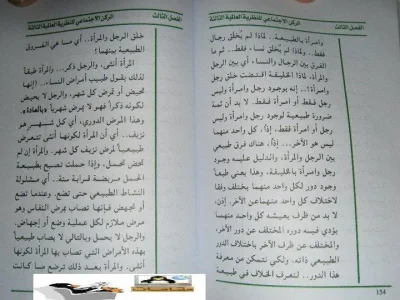 الفصل الثالث الركن الاجتماعي للنظرية العالمية الثالثة
وامرأة بالطبيعة.. لماذا لم يُخلق رجال
فقط.. ولماذا لم يُخلق نساء فقط.. ثم ما
الفرق بين الرجال والنساء، أي بين الرجل
والمرأة، لماذا الخليقة اقتضت خلق رجل
وامرأة؟.. إنه بوجود رجل وامرأة وليس
رجل فقط أو امرأة فقط.. لا بد أن ثمة
ضرورة طبيعية لوجود رجل وامرأة، وليس
رجل أو امرأة فقط، إذاً، كل واحد منهما
ليس هو الآخر... إذاً، هناك فرق طبيعي
بين الرجل والمرأة، والدليل عليه وجود
رجل وامرأة بالخليقة، وهذا يعني طبعاً
وجود دور لكل واحد منهما يختلف وفقا
لاختلاف كل واحد منهما عن الآخر. إذاً،
لا بد من ظرف يعيشه كل واحد منهما
يؤدي فيه دوره المختلف عن الآخر،
والمختلف عن ظرف الآخر باختلاف الدور
الطبيعي ذاته. ولكي نتمكن من معرفة
هذا الدور.. لنتعرف الخلاف في طبيعة
154
الركن الاجتماعي للنظرية العالمية الثالثة الفصل الثالث
خلق الرجل والمرأة.. أي ما هي الفروق
الطبيعية بينهما؟
المرأة أنثى، والرجل ذكر.. والمرأة طبقاً
لذلك يقول طبيب أمراض النساء.. (إنها
تحيض أو تمرض كل شهر، والرجل لا يحيض
لكونه ذكراً فهو لا يمرض شهرياً «بالعادة».
وهذا المرض الدوري، أي كل شهر هو
نزيف.. أي أن المرأة لكونها أنثى تتعرض
طبيعياً لمرض نزيف كل شهر. والمرأة إن لم
تحض تحمل، وإذا حملت تصبح بطبيعة
الحمل مريضة قرابة سنة.. أي مشلولة
النشاط الطبيعي حتى تضع. وعندما تضع
أو تجهض فإنها تصاب بمرض النفاس وهو
مرض ملازم لكل عملية وضع أو إجهاض.
والرجل لا يحمل وبالتالي لا يصاب طبيعياً
بهذه الأمراض التي تصاب بها المرأة لكونها
أنثى. والمرأة بعد ذلك ترضع ما كانت